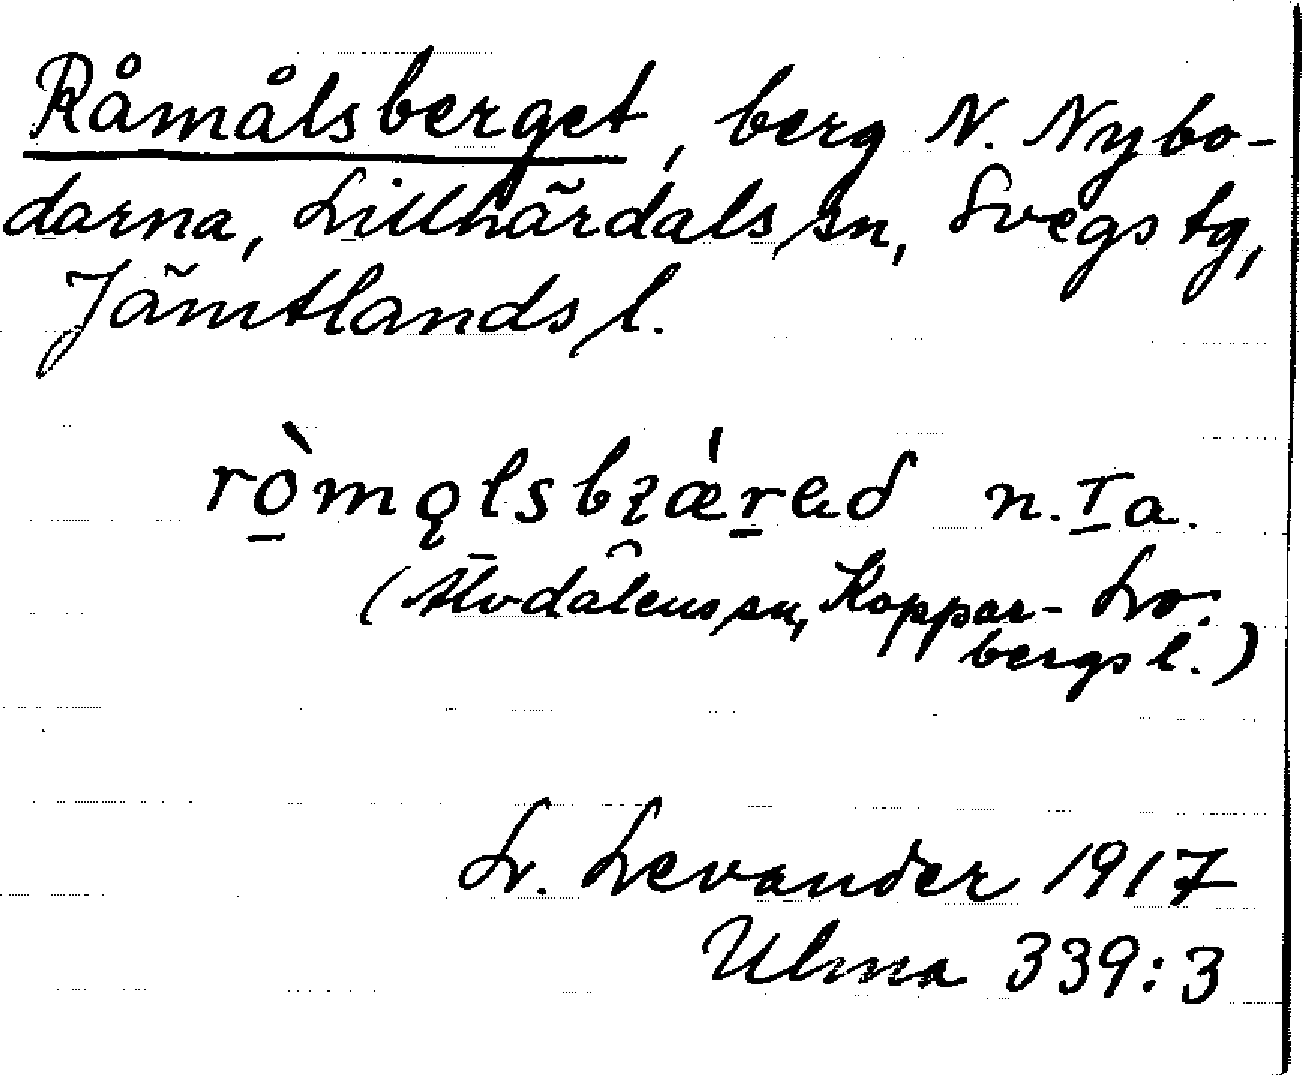 Råmålsberget, berg N. Nybo-
darna, Lillhärdals sn, Svegs tg,
Jämtlands l.
ròmǫlsbʒǽrəd n. I a.
(Älvdalens sn, Koppar-
bergs l.)
L. Levander 1917
Ulma 339:3